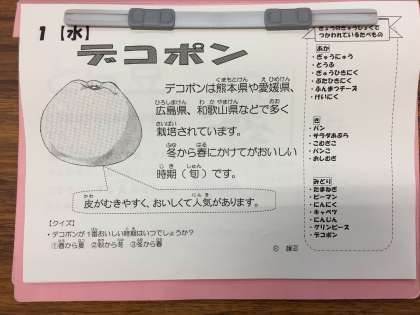 1【水】
デコポン
デコポンは熊本県や愛媛県、
広島県、和歌山県などで多く
栽培されています。
冬から春にかけてがおいしい
時期（旬）です。
皮がむきやすく、おいしくて人気があります。
【クイズ】
・デコポンが1番おいしい時期はいつでしょうか？
①春から夏 ②秋から冬 ③冬から春
つかわれているたべもの
あか
・ぎゅうにゅう
・とうふ
・ぎゅうひきにく
・ぶたひきにく
・ふんまつチーズ
・けいにく
き
・パン
・サラダあぶら
・こめこ
・パンこ
・おしむぎ
みどり
・たまねぎ
・ピーマン
・にんにく
・キャベツ
・にんじん
・グリンピース
・デコポン